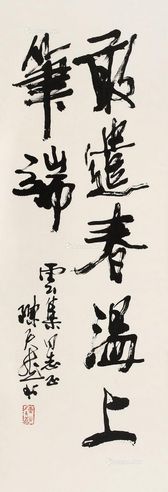 敢遣春温上
筆端
雲集同志正
陳天然书